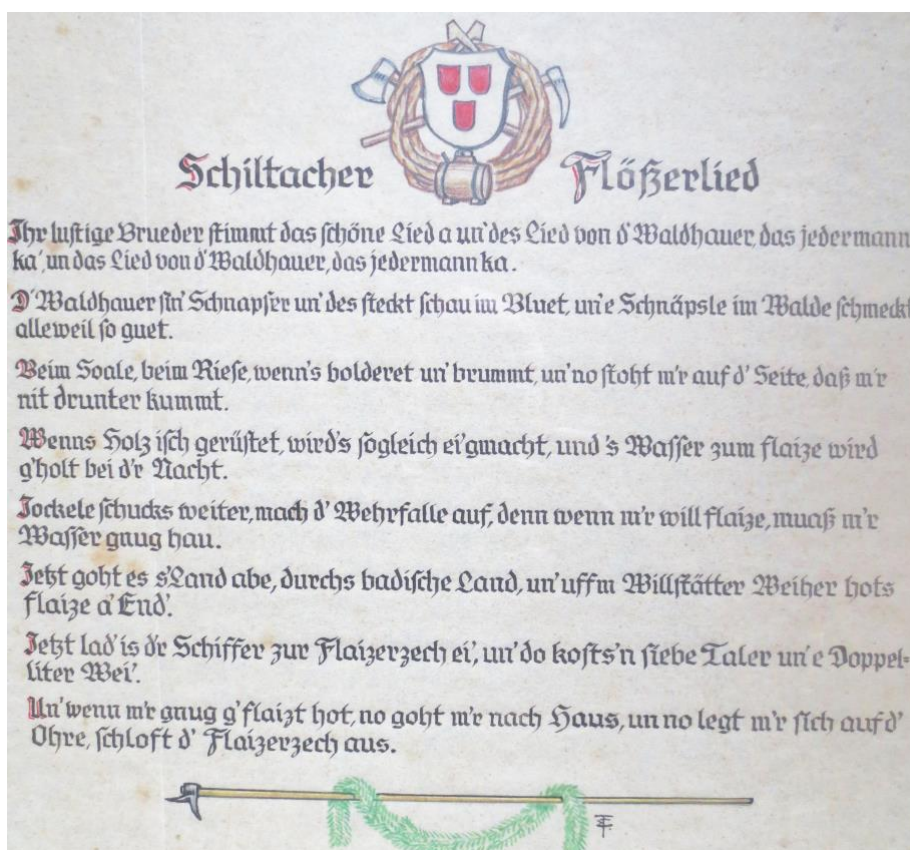 Schiltacher Flößerlied
Ihr lustige Brueder stimmt das schöne Lied a un' des Lied von d' Waldhauer, das jedermann
ka', un das Lied von d' Waldhauer, das jedermann ka.
D' Waldhauer sin' Schnapser un' des steckt schau im Bluet, un' e Schnäpsle im Walde schmeckt
alleweil so guet.
Beim Soale, beim Riese, wenn's bolderet un' brummt, un' no stoht m'r auf d' Seite, daß m'r
nit drunter kummt.
Wenns Holz isch gerüstet, wird's sogleich ei'gmacht, und 's Wasser zum flaize wird
g'holt bei d'r Nacht.
Jockele schucks weiter, mach d' Wehrfalle auf, denn wenn m'r will flaize, muaß m'r
Wasser gnug hau.
Jetzt goht es s'Land abe, durchs badische Land, un' uffm Willstätter Weiher hots
flaize a' End'.
Jetzt lad' is d'r Schiffer zur Flaizerzech ei', un' do kosts'n siebe Taler un' e Doppel-
liter Wei'.
Un' wenn m'r gnug g'flaizt hot, no goht m'r nach Haus, un no legt m'r sich auf d'
Ohre, schloft d' Flaizerzech aus.